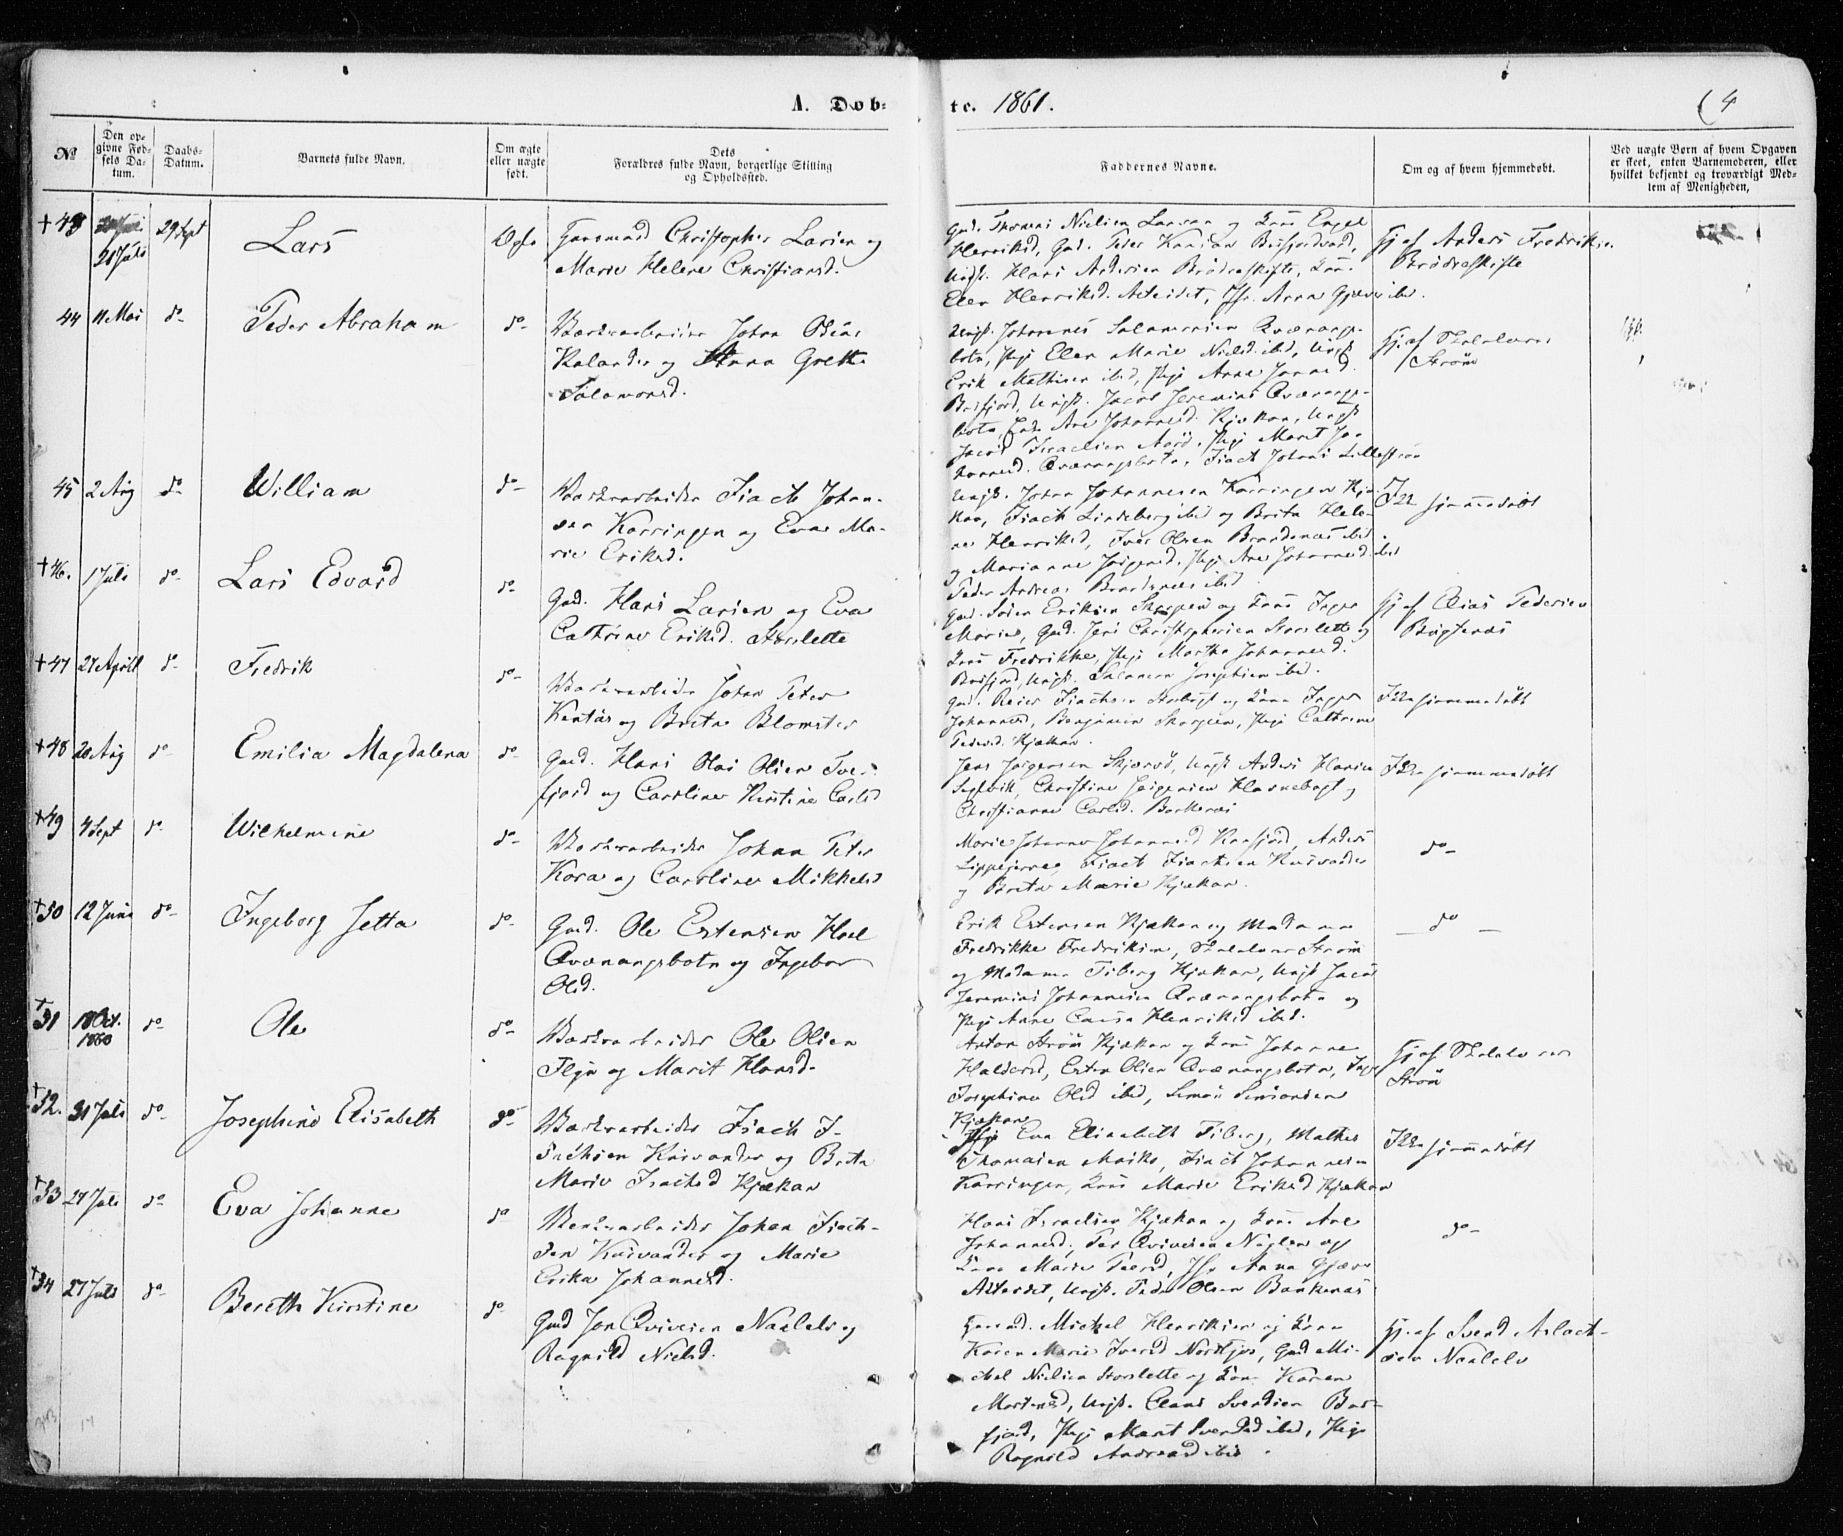 A. Døb-
te. 1861.
4
No
Den op-
givne Fød-
sels Da-
tum.
Daabs-
Datum.
Barnets fulde Navn.
Om ægte
eller uægte
født.
Dets
Forældres fulde Navn, borgerlige Stilling
og Opholdssted.
Faddernes Navne.
Om og af hvem hjemmedøbt.
Ved uægte Børn af hvem Opgaven
er skeet, enten Barnemoderen, eller
hvilket bekjendt og troværdigt Med-
lem af Menigheden,
+ 43
21 Juli
29 Sept
Lars
Ægte
Gaardmd Christopher Larsen og
Marie Helene Christiansd.
Gmd. Thomas Nielsen Larsen og Kone Engel
Henriksd, Gmd. Peder Hansen Busfjordvand,
Ungk. Hans Andersen Brødreskifte, Kone
Elen Henriksd. Alteidet, Jfr. Anna Gjæver ibid.
Hj. af Anders Fredriksen
Brødreskifte
44
11 Mai
do
Peder Abraham
do
Værksarbeider Johan Oscar
Kalander og Anna Grethe
Salamonsd.
Ungk. Johannes Salamonsen Qvænangs-
botn, Pige Elen Marie Nielsd. ibid, Ungk
Erik Mathisen ibid, Pige Anne Jonasd.
Busfjord, Ungk. Jacob Jeremias Qvænangs-
botn, Ane Johannesd. Kjækan, Ungk
Jacob Israelsen Aarø, Pige Marit Jo-
hannesd. Qvænangsbotn, Isach Johans Lillestrøm
Hj. af Skolelærer
Strøm
45
2 Aug
do
William
do
Værksarbeider Isach Johan-
sen Korringen og Eva Ma-
rie Eriksd.
Ungk. Johan Johannesen Korringen Kjæ-
kan, Isach Lindeberg ibid og Brita Hele-
ne Henriksd, Iver Olsen Brandsnæs ibid
og Marianne Jørgensd, Pige Ane Johannesd. ibid
Peder Andreas Brandsnæs ibid
Ikke hjemmedøbt
+ 46.
1 Juli
do
Lars Edvard
do
Gmd. Hans Larsen og Eva
Cathrine Eriksd. Storslette
Gmd. Søren Eriksen og Kone Inger
Marie, Gmd. Jens Christophersen Storslette og
Kone Fredrikke, Pige Marthe Johannesd.
Busfjord, Ungk. Salamon Josephsen ibid.
Hj. af Elias Pedersen
Bugtenæs
+ 47
27 April
do
Fredrik
do
Værksarbeider Johan Peter
Kentäs og Brita Blomster
Gmd. Reier Isachsen Storbugt og Kone Inger
Johannesd, Benjamin, Pige Cathrine
Pedersd. Kjækan.
Ikke hjemmedøbt
+ 48
20 Aug
do
Emilia Magdalena
do
Gmd. Hans Olai Olsen Tver-
fjord og Caroline Kirstine Carlsd
Jens Jørgensen Skjervø, Ungk Anders Hansen
Segelvik, Christine Jørgensen Havnebugt og
Christianne Carlsd. Bankenæs
Ikke hjemmedøbt
+ 49
4 Sept
do
Wilhelmine
do
Værksarbeider Johan Peter
Kora og Caroline Mikkelsd
Marie Johanne Johannesd Kaafjord, Anders
Lippejerve, Isach Isachsen Knivander
og Brita Marie Kjækan.
do
+ 50
12 Juni
do
Ingeborg Jetta
do
Gmd. Ole Estensen Hoel
Qvænangsbotn og Ingebor
Olsd.
Erik Estensen Kjækan og Madame
Fredrikke Fredriksen, Skolelærer Strøm
og Madame Fiberg Kjækan, Ungk Jacob
Jeremias Johannesen Qvænangsbotn og
Pige Anne Caisa Henriksd ibid.
do
+ 51
18 Oct.
1860
do
Ole
do
Værksarbeider Ole Olsen
Flyn og Marit Hansd.
Anton Strøm Kjækan og Kone Johanne
Haldorsd, Esten Olsen Qvænangsbotn, Pige
Josephine Olsd ibid, Simon Simonsen
Kjækan
Hj. af Skolelærer
Strøm
+ 52.
31 Juli
do
Josephine Elisabeth
do
Værksarbeider Isach I-
sachsen Knivander og Brita
Marie Isachsd Kjækan
Pige Eva Elisabeth Fiberg, Mathis
Thomasen Maiko, Isach Johannesen
Korringen, Kone Marie Eriksd Kjækan
Ikke hjemmedøbt
+ 53
27 Juli
do
Eva Johanne
do
Værksarbeider Johan Isach-
sen Knivander og Marie
Erika Johannesd.
Hans Israelsen Kjækan og Kone Ane
Johannesd, Per Qvivesen Naglen og
Kone Marie Peersd, Jfr Anna Gjæver
Alteidet, Ungk. Peder Olsen Bankenæs
do
+ 54
27 Juli
do
Bereth Kirstine
do
Gmd Jon Qvivesen Naalels og
Ragnild Nielsd.
Gaardmd. Mickel Henriksen og Kone
Karen Marie Iversd Nordkjos, Gmd Mi-
ckel Nielsen Storslette og Kone Karen
Mortensd, Ungk. Claus Svendsen Bus-
fjord, Pige Marit Svendsd ibid, Pige
Ragnild Andreasd ibid.
Hj. af Svend Aslach-
sen Naalels